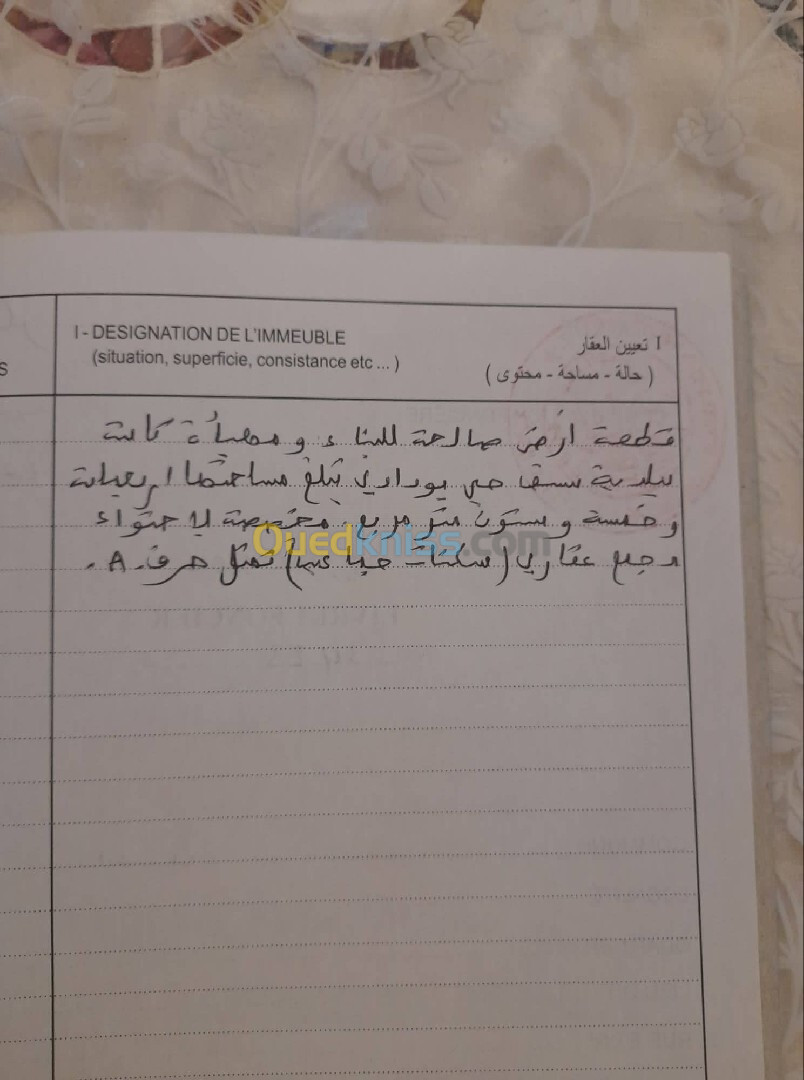 I - DESIGNATION DE L'IMMEUBLE
(situation, superficie, consistance etc ... )
I تعيين العقار
( حالة - مساحة - محتوى )
S
قطعة أرض صالحة للبناء و مهيأة كائنة
ببلدية حي بوداري تبلغ مساحتها اربعمائة
و خمسة و ستون متر مربع مخصصة لاحتواء
مجمع عقاري ( سكنات ) تمثل حرف A.
Ouedkniss.com